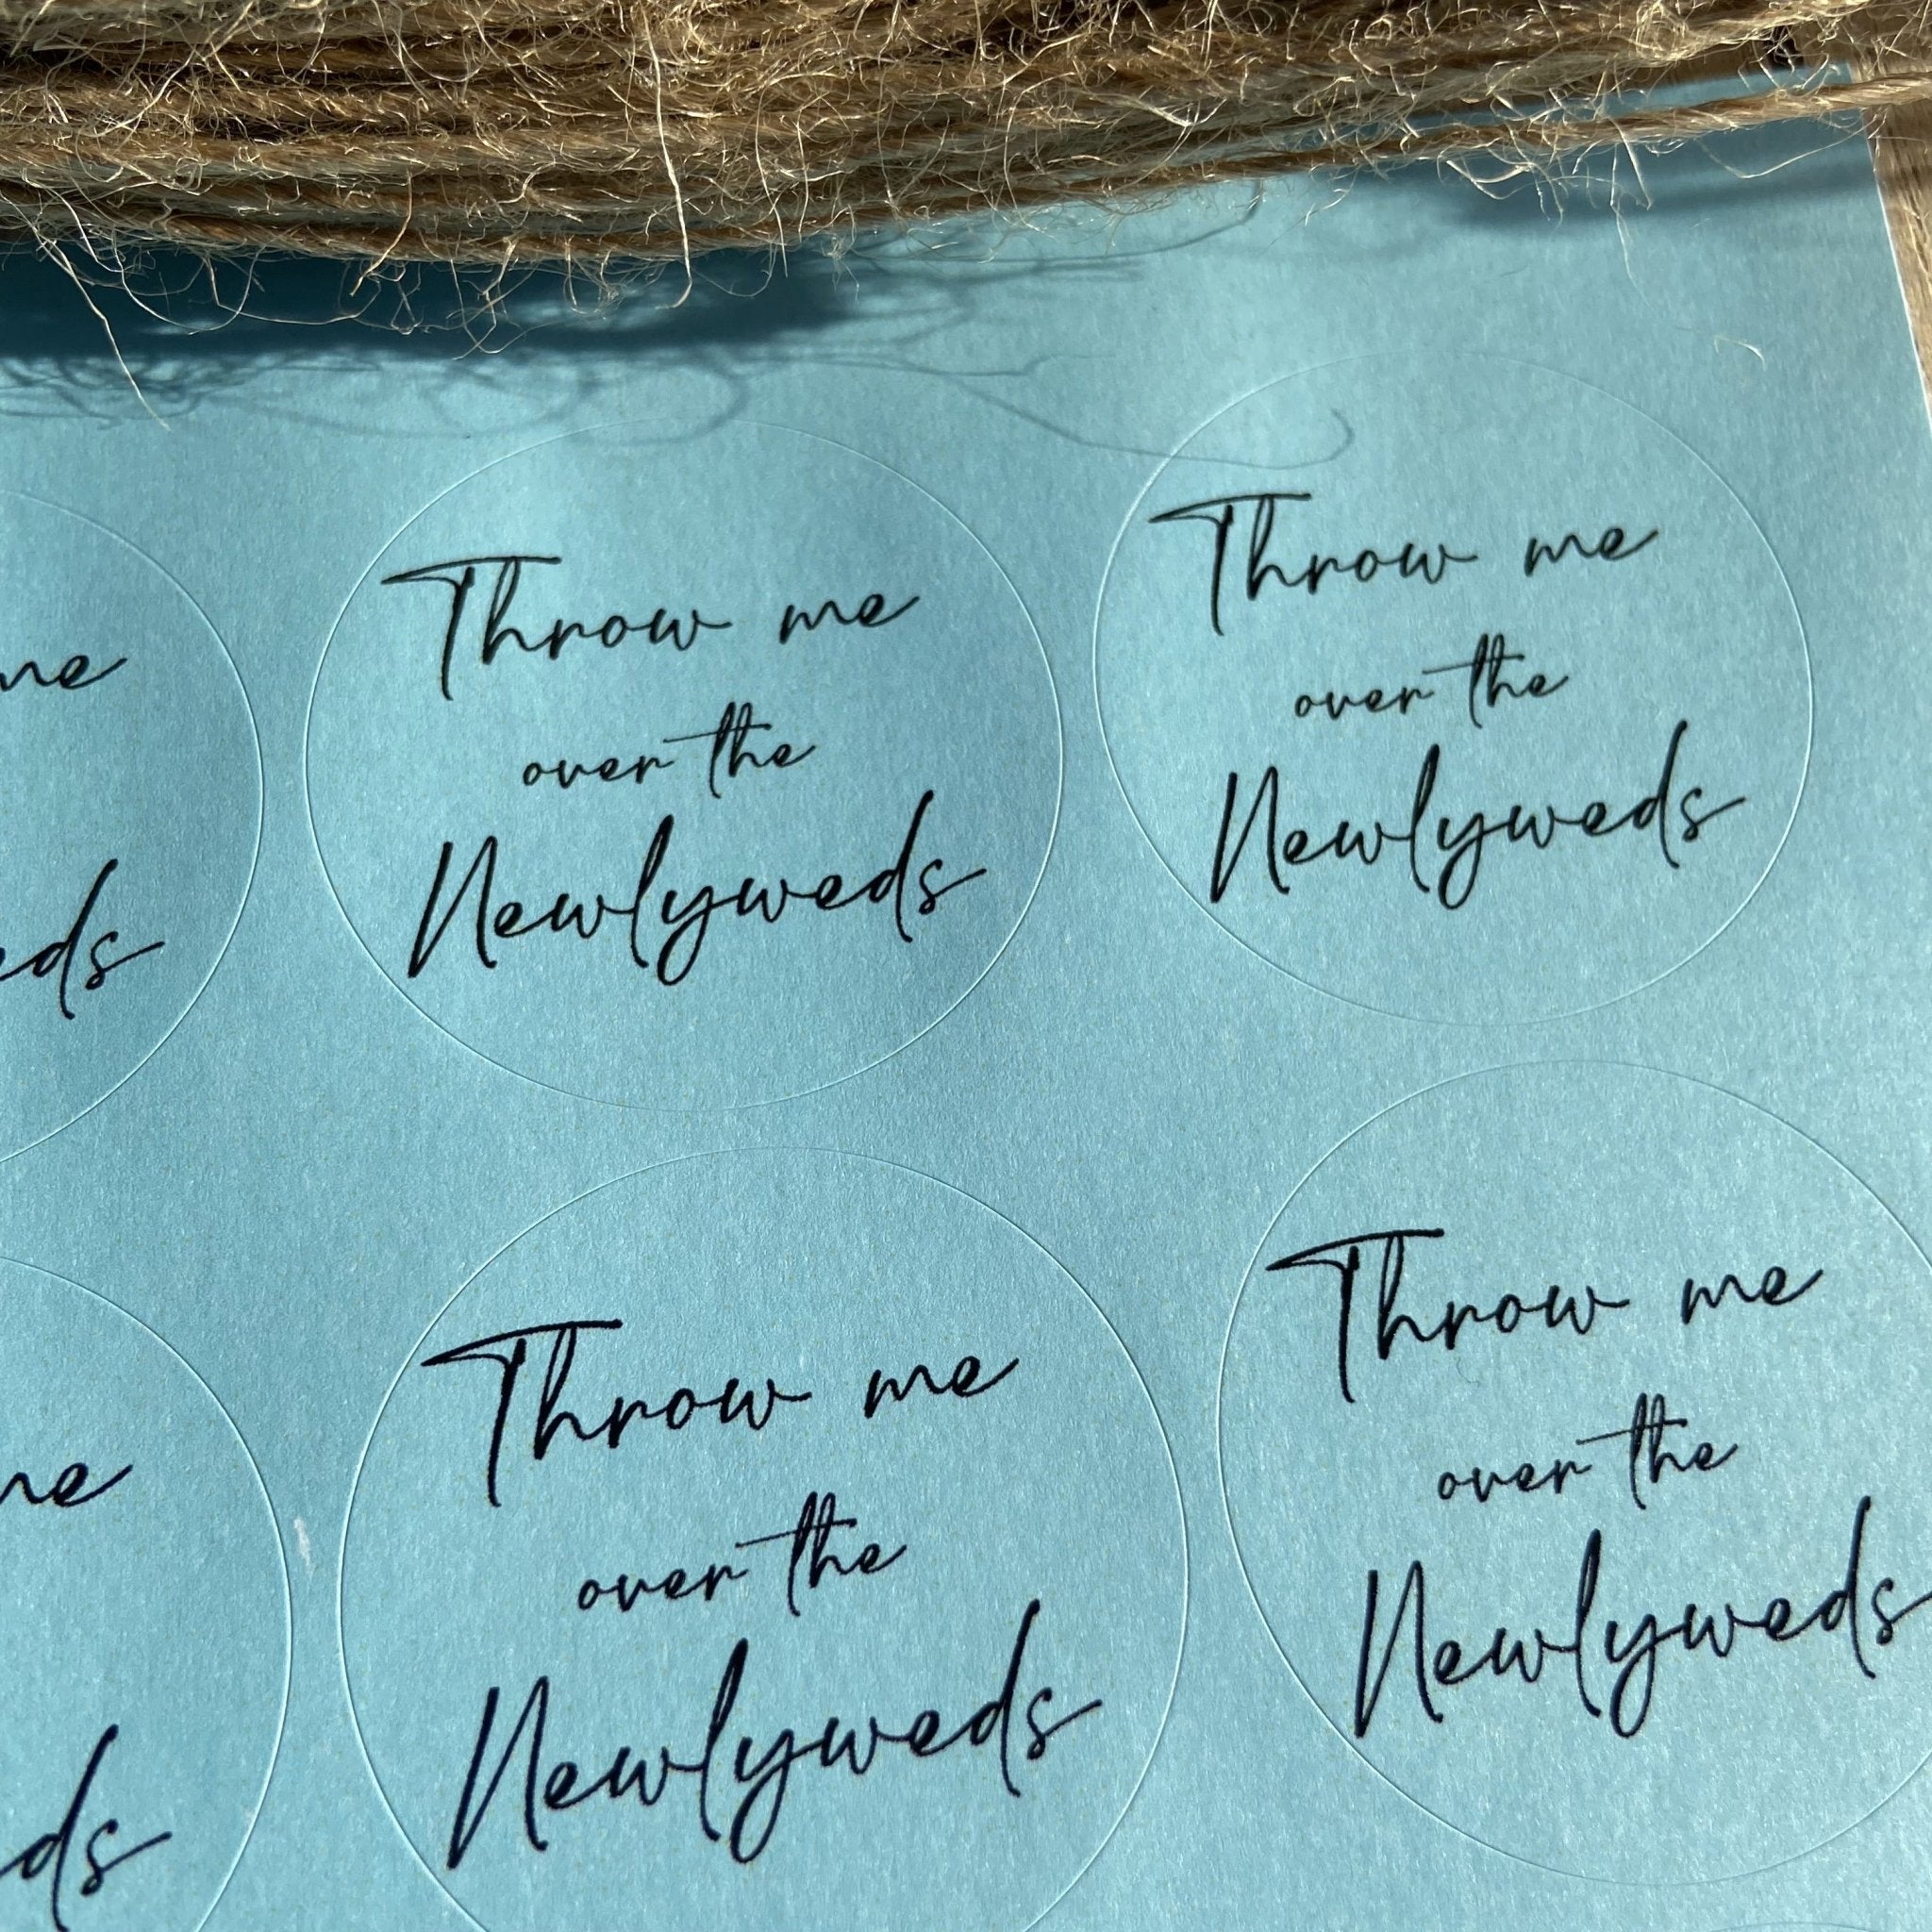 Throw me
over the
Newlyweds
Throw me
over the
Newlyweds
me
eds
Throw me
over the
Newlyweds
Throw me
over the
Newlyweds
me
ds